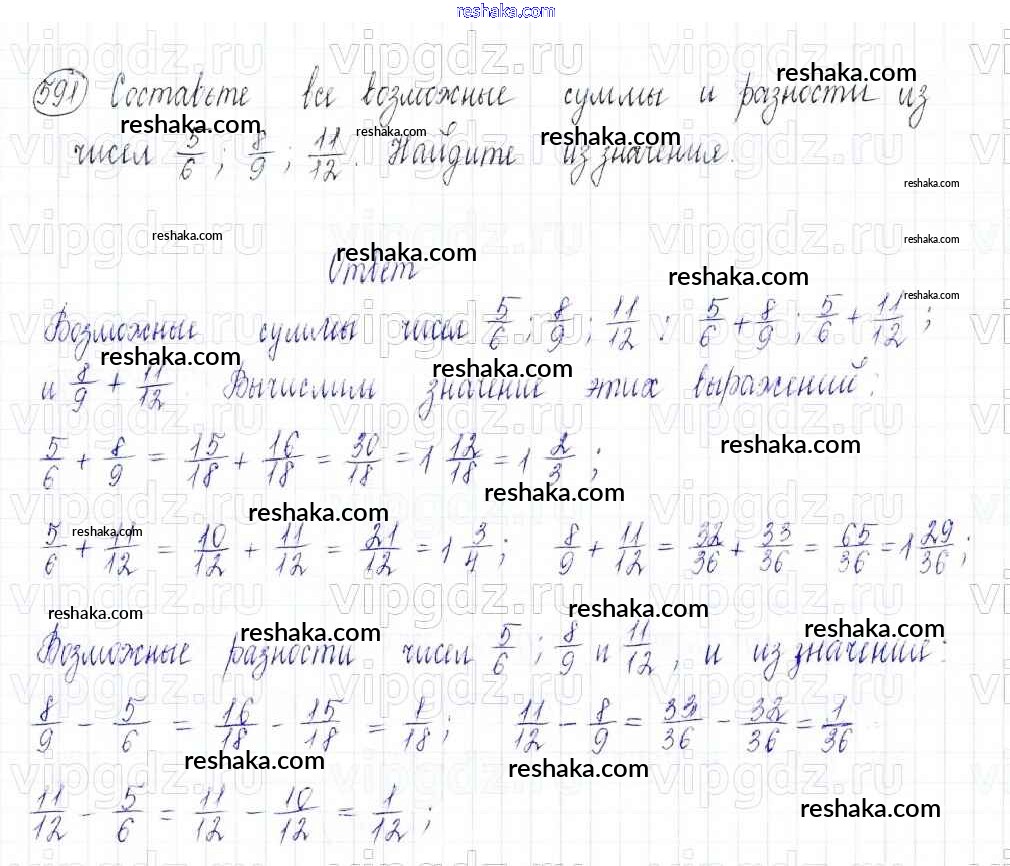 reshaka.com
591 Составьте все возможные суммы и разности из
чисел 5/6 ; 8/9 ; 11/12. Найдите из значения.
Ответ
Возможные суммы чисел 5/6 ; 8/9 ; 11/12 : 5/6 + 8/9 ; 5/6 + 11/12 ;
и 8/9 + 11/12. Вычислим значение этих выражений:
5/6 + 8/9 = 15/18 + 16/18 = 30/18 = 1 12/18 = 1 2/3 ;
5/6 + 11/12 = 10/12 + 11/12 = 21/12 = 1 3/4 ; 8/9 + 11/12 = 32/36 + 33/36 = 65/36 = 1 29/36 ;
Возможные разности чисел 5/6 ; 8/9 и 11/12 , и из значение:
8/9 - 5/6 = 16/18 - 15/18 = 1/18 ; 11/12 - 8/9 = 33/36 - 32/36 = 1/36
11/12 - 5/6 = 11/12 - 10/12 = 1/12 ;